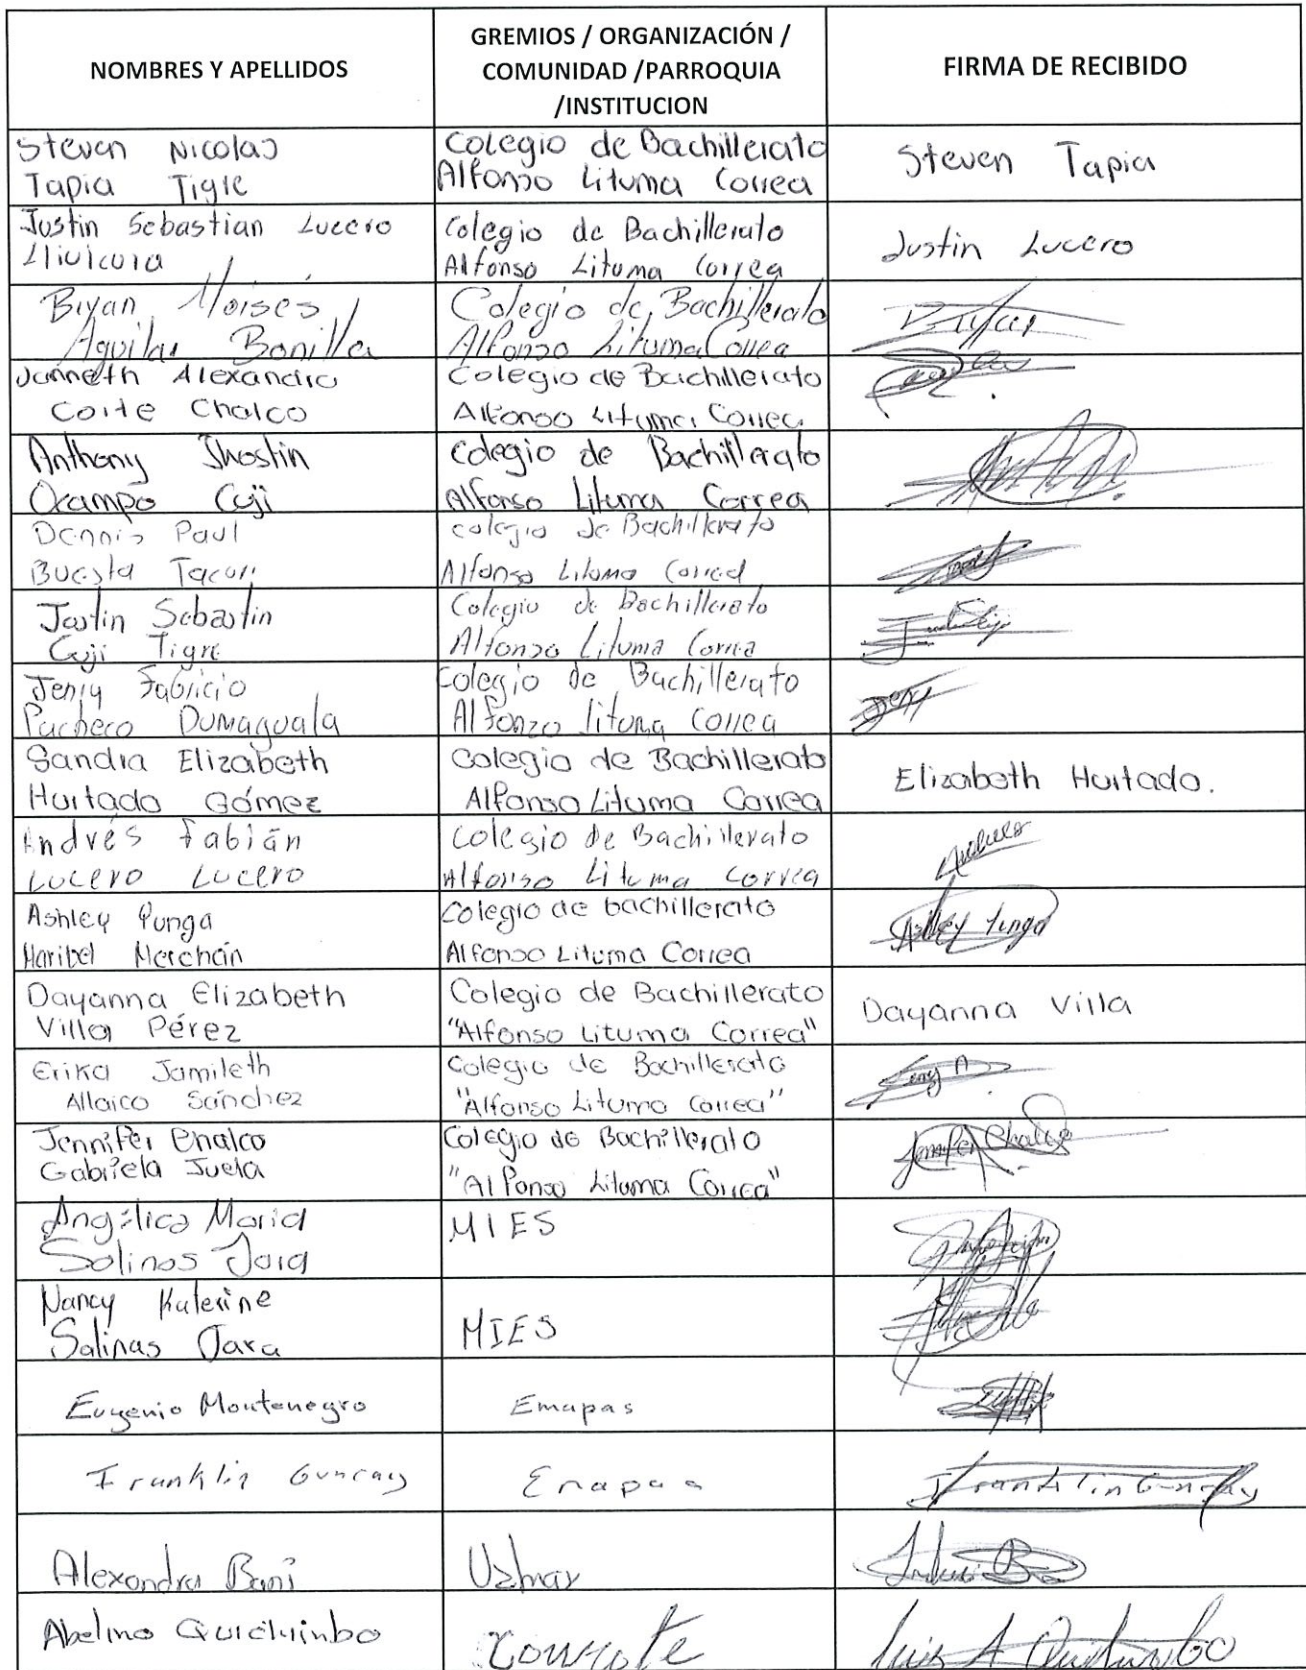 NOMBRES Y APELLIDOS
GREMIOS / ORGANIZACIÓN /
COMUNIDAD /PARROQUIA
/INSTITUCION
FIRMA DE RECIBIDO
Steven Nicolas
Tapia Tigre
Colegio de Bachillerato
Alfonso Lituma Correa
Steven Tapia
Justin Sebastian Lucero
Llivicura
Colegio de Bachillerato
Alfonso Lituma Correa
Justin Lucero
Bryan Moises
Aguilar Bonilla
Colegio de Bachillerato
Alfonso Lituma Correa
Janneth Alexandra
Corte Chalco
Colegio de Bachillerato
Alfonso Lituma Correa
Anthony Jhostin
Ocampo Cuji
Colegio de Bachillerato
Alfonso Lituma Correa
Dennis Paul
Buesta Tacuri
colegio de Bachillerato
Alfonso Lituma Correa
Justin Sebastin
Cuji Tigre
Colegio de Bachillerato
Alfonso Lituma Correa
Jenry Fabricio
Pacheco Dumaguala
Colegio de Bachillerato
Alfonzo lituma Correa
Jenry
Sandra Elizabeth
Hurtado Gómez
Colegio de Bachillerato
Alfonso Lituma Correa
Elizabeth Hurtado.
Andrés Fabián
Lucero Lucero
Colegio de Bachillerato
Alfonso Lituma Correa
Ashley Punga
Maribel Merchán
Colegio de bachillerato
Alfonso Lituma Correa
Ashley Punga
Dayanna Elizabeth
Villa Pérez
Colegio de Bachillerato
"Alfonso Lituma Correa"
Dayanna Villa
Erika Jamileth
Allaico Sánchez
Colegio de Bachillerato
"Alfonso Lituma Correa"
Jennifer Chalco
Gabriela Juela
Colegio de Bachillerato
"Alfonso Lituma Correa"
Jennifer Chalco
Angélica María
Salinas Jara
MIES
Nancy Katerine
Salinas Jara
MIES
Eugenio Montenegro
Emapas
Franklin Guncay
Emapas
Franklin Guncay
Alexandra Bani
Abelino Quichimbo
Luis A Quichimbo